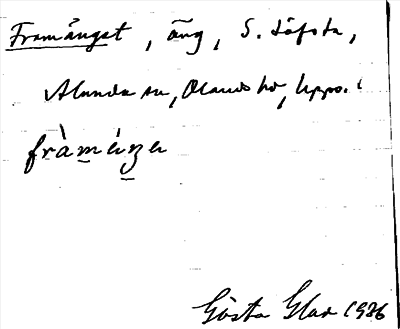 Framänget, äng, S. Löfsta,
Alunda sn, Olands hd, Upps.l
fràmèŋen
Gösta Glad 1936